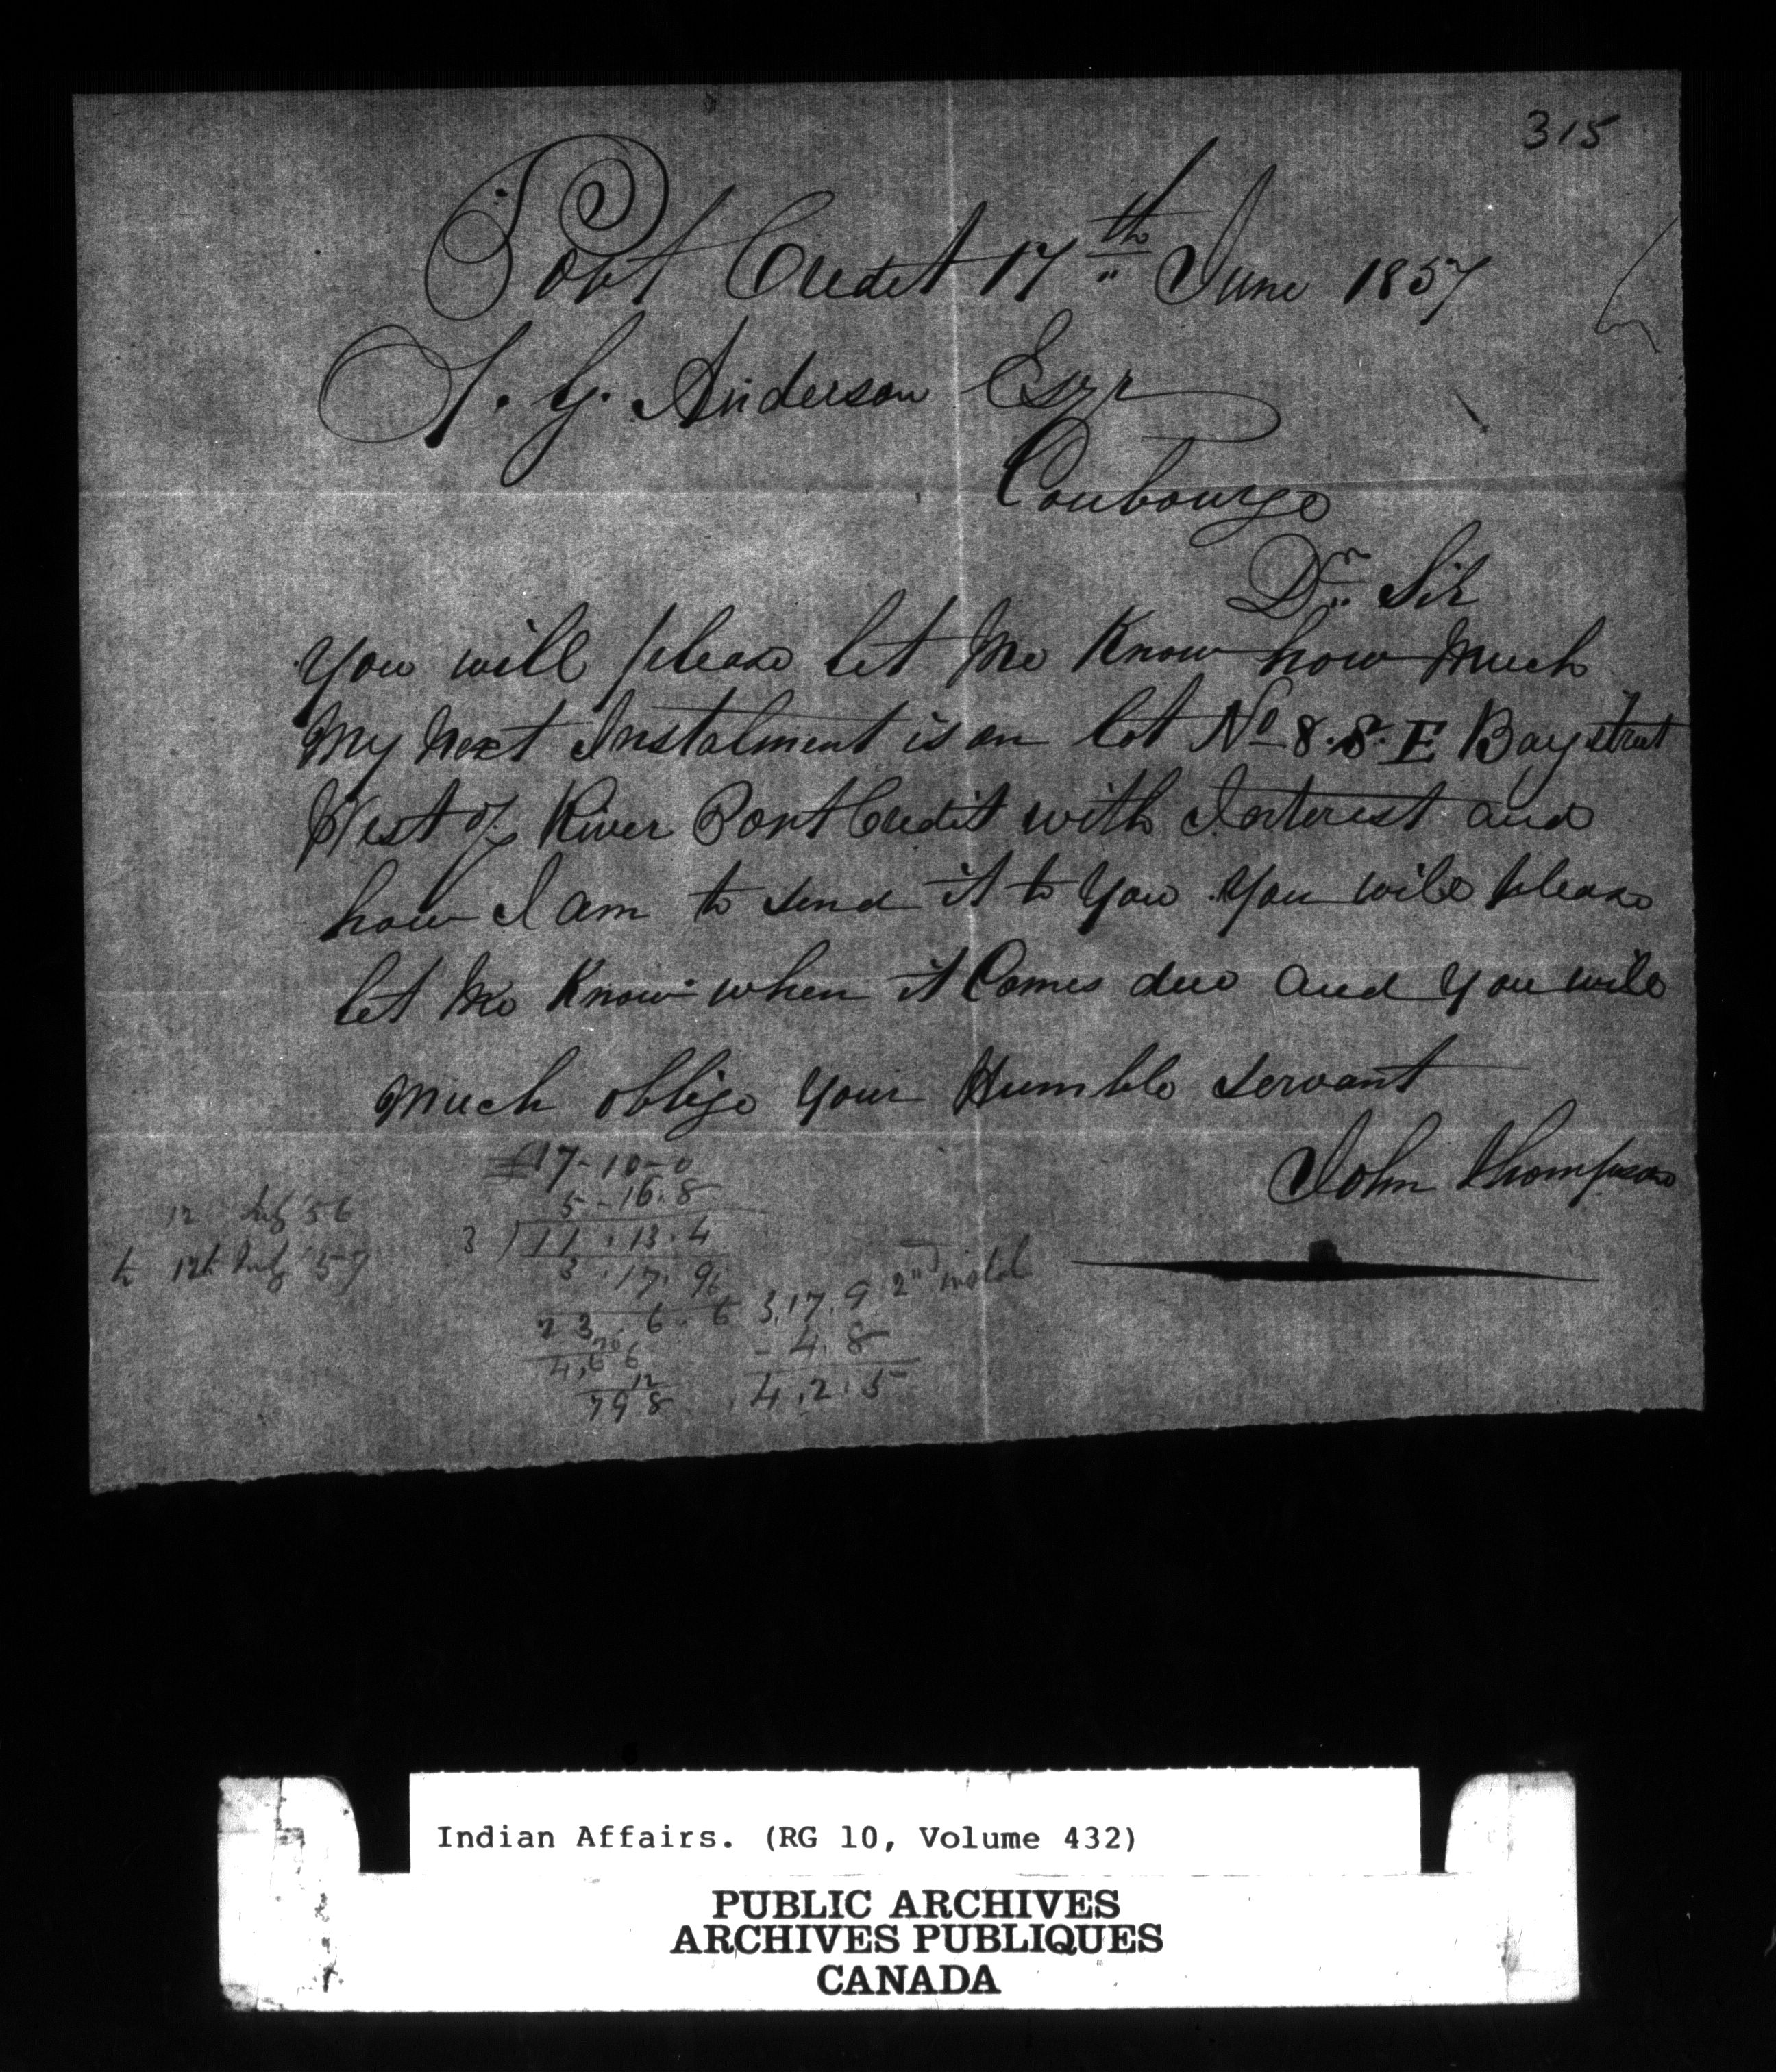 315
Port Credit 17th June 1857
T. G. Anderson Esqr
Coubourge
Dr Sir
You will please let Me Know how Much
My Next Instalment is on lot No 8. S. E Bay street
West of River Port Credit with Interest and
how I am to send it to You You will please
let Me Know when it Comes due and You will
Much oblige Your Humble Servant
John Thompson
£17-10-0
5-16.8
12 July 56
3 ) 11.13.4
to 12th July 57
3.17.9
3.17.9 2nd instal
- 4.8
4.2.5
Indian Affairs. (RG 10, Volume 432)
PUBLIC ARCHIVES
ARCHIVES PUBLIQUES
CANADA